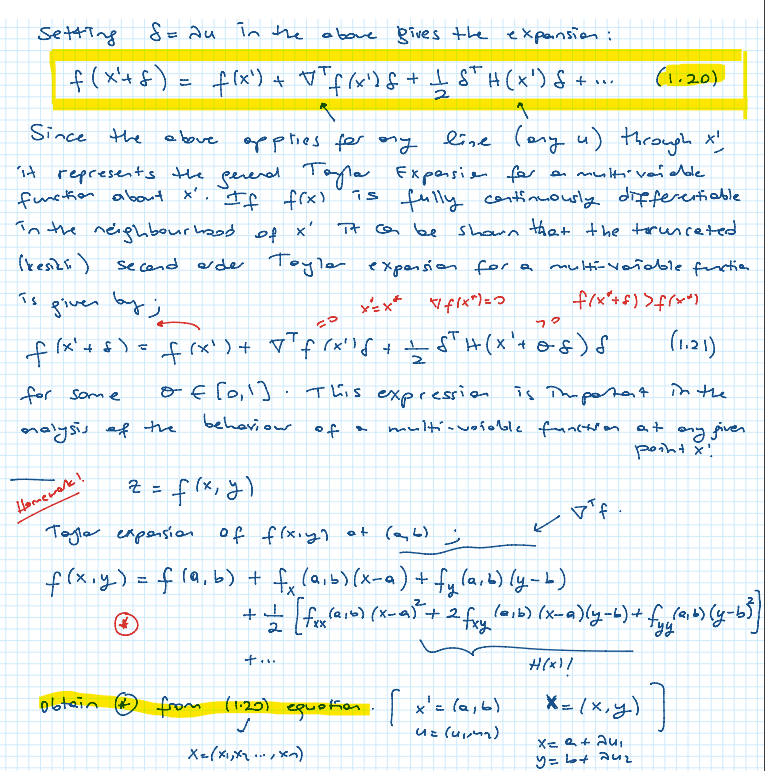 Setting δ = λu in the above gives the expansion:
f(x'+δ) = f(x') + ∇ᵀf(x')δ + 1/2 δᵀH(x')δ + ... (1.20)
Since the above applies for any line (any u) through x',
it represents the general Taylor Expansion for a multi-variable
function about x'. If f(x) is fully continuously differentiable
in the neighbourhood of x' it can be shown that the truncated
(kesikli) second order Taylor expansion for a multi-variable function
is given by;
x'=x* ∇f(x*)=0 f(x*+δ)>f(x*)
=0 >0
f(x'+δ) = f(x') + ∇ᵀf(x')δ + 1/2 δᵀH(x'+θδ)δ (1.21)
for some θ ∈ [0,1]. This expression is important in the
analysis of the behaviour of a multi-variable function at any given
point x'.
Homework!
z = f(x,y)
∇ᵀf.
Taylor expansion of f(x,y) at (a,b);
f(x,y) = f(a,b) + fₓ(a,b)(x-a) + f_y(a,b)(y-b)
* + 1/2 [fₓₓ(a,b)(x-a)² + 2f_xy(a,b)(x-a)(y-b) + f_yy(a,b)(y-b)²]
+...
H(x)!
Obtain * from (1.20) equation. [x'=(a,b) x=(x,y)]
u=(u₁,u₂)
x = a + λu₁
x=(x₁,x₂...,xₙ) y = b + λu₂